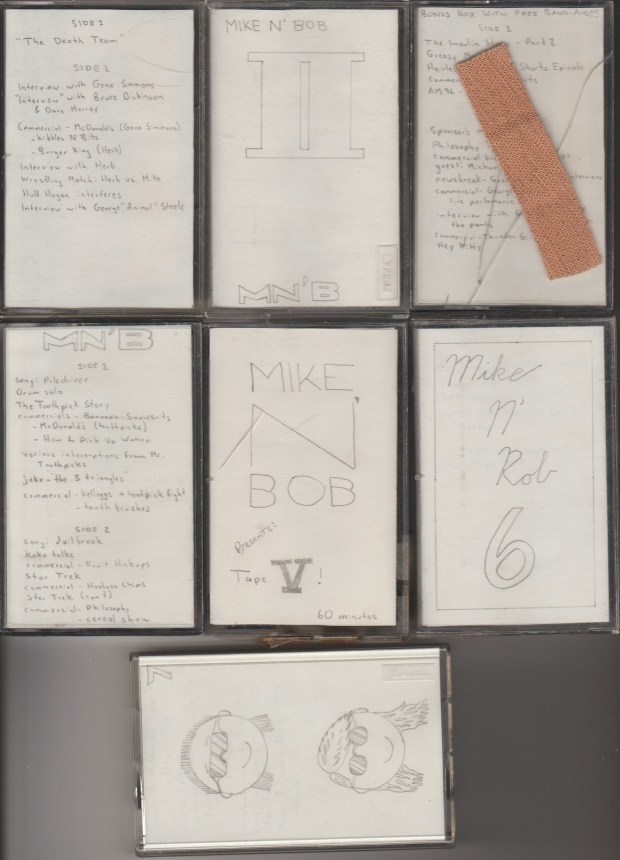 SIDE 1
"The Death Team"
SIDE 2
Interview with Gene Simmons
"Interview" with Bruce Dickinson
& Dave Murray
Commercial - McDonald's (Gene Simmons)
- Kibbles N Bits
- Burger King (Herb)
Interview with Herb
Wrestling Match: Herb vs. Mike
Hulk Hogan interferes
Interview with George "Animal" Steele
MIKE N' BOB
II
MN'B
BONUS BOX WITH FREE BAND-AID!!!
SIDE 1
The Insulin - Part 2
Greasy
Shorts Episode
AM 96 -
Sponsors
Philosophy
commercial
guest: Michael
newsbreak - interview
commercial - George
live performance
interview with
the pants
commercial - Thunder
Hey
MN'B
SIDE 1
song: Piledriver
Drum solo
The Toothpick Story
commercials -
- McDonald's (toothpicks)
- How to Pick Up Women
various interruptions from Mr.
Toothpicks
joke - the "3 triangles"
commercial - Kelloggs + toothpick fight
- tooth brushes
SIDE 2
song: Jailbreak
Koko talks
commercial -
Star Trek
commercial - Chips
Star Trek (cont)
commercial - Philosophy
- cereal show
MIKE
N'
BOB
Presents:
Tape V!
60 minutes
Mike
N'
Rob
6
7